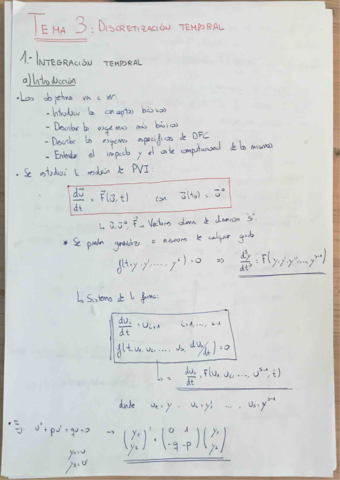 TEMA 3: DISCRETIZACIÓN TEMPORAL
1.- INTEGRACIÓN TEMPORAL
a) Introducción
• Los objetivos van a ser:
- Introducir los conceptos básicos
- Describir los esquemas más básicos
- Describir los esquemas específicos de DFC
- Entender el impacto y el coste computacional de los mismos
• Se estudiará la resolución de PVI:
dū/dt = F(ū, t) con ū(t₀) = ū⁰
↳ ū, ū⁰, F = Vectores columna de dimensión "s"
* Se puede generalizar a ecuaciones de cualquier grado
f(t, y, y', ..., yˢ) = 0 ⇒
↳ Sistema de la forma:
duᵢ/dt = uᵢ₊₁ i=1, ..., s-1
f(t, u₁, u₂, ..., uₛ, duₛ/dt) = 0
donde u₁ = y, u₂ = y', ..., uₛ = yˢ⁻¹
• Ej: u'' + pu' + qu = 0 → (y₁ y₂)' = (0 1 -q -p) (y₁ y₂)
y₁ = u
y₂ = u'